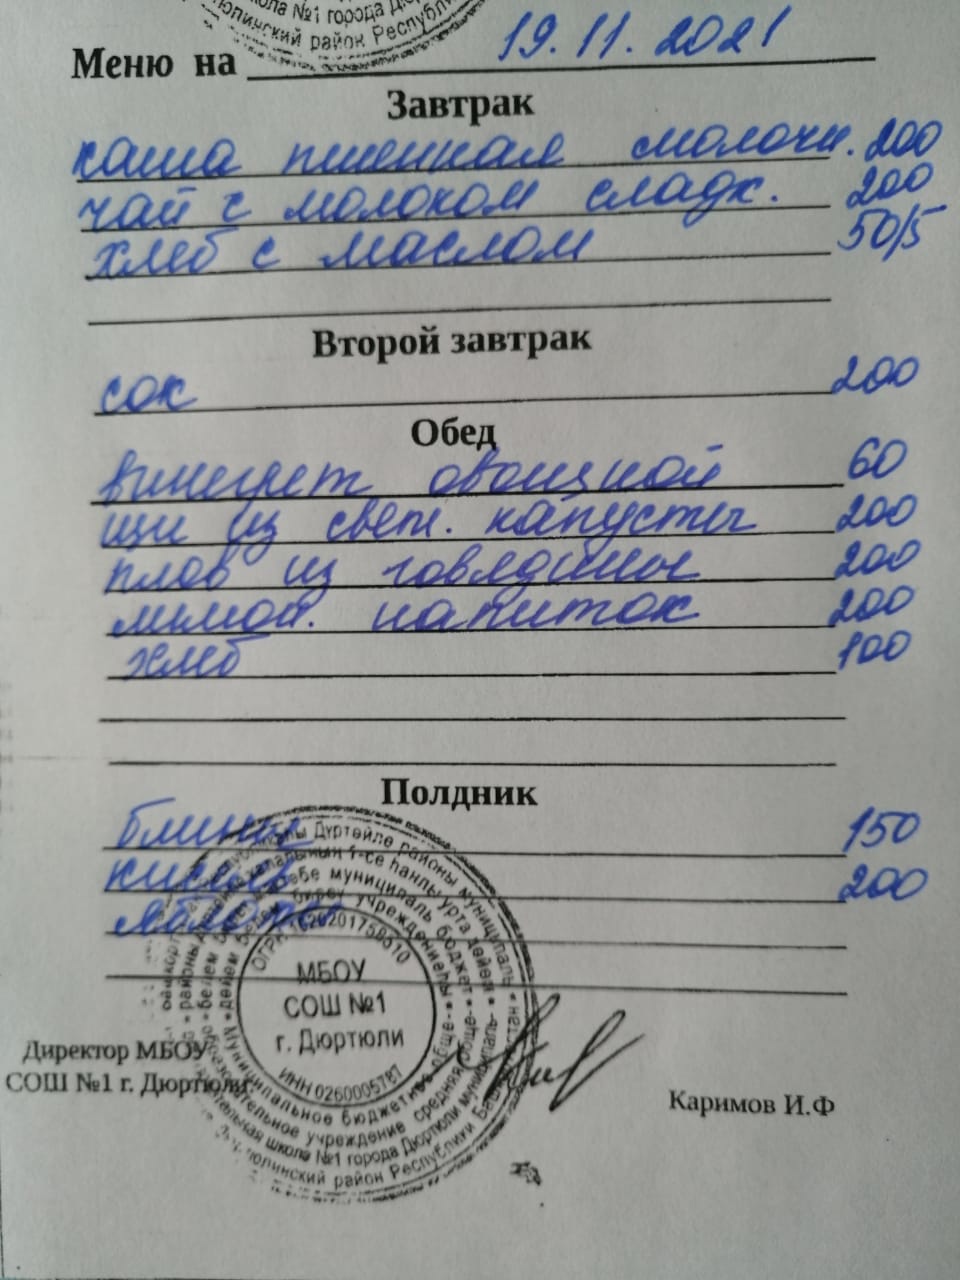 ола №1 города Дюр
юлинский район Республики
Меню на 19.11.2021
Завтрак
каша пшенная молочн. 200
чай с молоком сладк. 200
хлеб с маслом 50/5
Второй завтрак
сок 200
Обед
винегрет овощной 60
щи из свеж. капусты 200
плов из говядины 200
лимон. напиток 200
хлеб 100
Полдник
блины 150
200
яблоко
МБОУ
СОШ №1
г. Дюртюли
ИНН 0260005787
Директор МБОУ
СОШ №1 г. Дюртюли
Каримов И.Ф